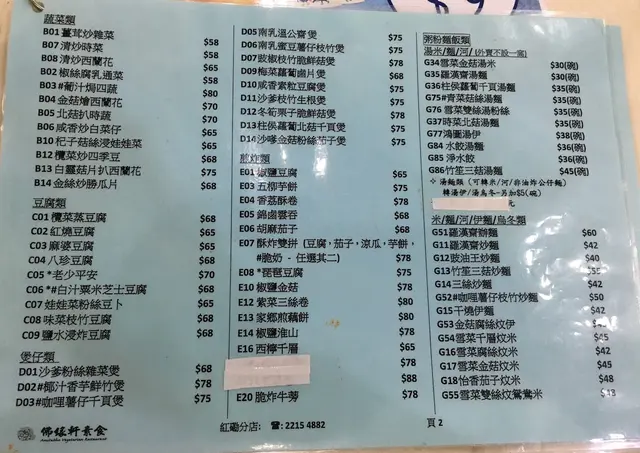 蔬菜類
B01 薑茸炒雜菜 $58
B07 清炒時菜 $58
B08 清炒西蘭花 $58
B02 椒絲腐乳通菜 $65
B03 #葡汁焗四蔬 $80
B04 金菇燴西蘭花 $70
B05 北菇扒時蔬 $70
B06 咸香炒白菜仔 $65
B10 杞子菇絲浸娃娃菜 $65
B12 欖菜炒四季豆 $68
B13 白靈菇片扒西蘭花 $75
B14 金絲炒勝瓜片 $68
豆腐類
C01 欖菜蒸豆腐 $68
C02 紅燒豆腐 $68
C03 麻婆豆腐 $65
C04 八珍豆腐 $68
C05 *老少平安 $70
C06 *#白汁粟米芝士豆腐 $68
C07 娃娃菜粉絲豆卜 $65
C08 味菜枝竹豆腐 $68
C09 鹽水浸炸豆腐 $68
煲仔類
D01 沙爹粉絲雜菜煲 $68
D02#椰汁香芋鮮竹煲 $78
D03#咖哩薯仔千頁煲 $75
D05 南乳溫公齋煲 $75
D06 南乳蜜豆薯仔枝竹煲 $75
D07 豉椒枝竹脆鮮菇煲 $78
D09 梅菜蘿蔔鹵片煲 $68
D10 咸香素粒豆腐煲 $78
D11 沙爹枝竹生根煲 $78
D12 冬筍栗子脆鮮菇煲 $78
D13 柱侯蘿蔔北菇千頁煲 $75
D14 沙嗲金菇粉絲茄子煲 $75
煎炸類
E01 椒鹽豆腐 $65
E03 五柳芋餅 $75
E04 香荔酥卷 $78
E05 錦鹵雲吞 $68
E06 胡麻茄子 $68
E07 酥炸雙拼 (豆腐，茄子，涼瓜，芋餅，
#脆奶 - 任選其二) $78
E08 *琵琶豆腐 $75
E10 椒鹽金菇 $78
E12 紫菜三絲卷 $80
E13 家鄉煎藕餅 $80
E14 椒鹽淮山 $78
E16 西檸千層 $65
$78
$88
E20 脆炸牛蒡 $78
粥粉麵飯類
湯米/麵/河/ (外賣不設一窩)
G34 雪菜金菇湯米 $30(碗)
G35 羅漢齋湯麵 $30(碗)
G36 柱侯蘿蔔千頁湯麵 $35(碗)
G75#青菜菇絲湯麵 $35(碗)
G76 雪菜雙絲湯粉絲 $35(碗)
G37 時菜北菇湯麵 $38(碗)
G77 鴻圖湯伊 $38(碗)
G84 水餃湯麵 $36(碗)
G85 淨水餃 $36(碗)
G86 竹笙三菇湯麵 $45(碗)
✧ 湯麵類 (可轉米/河/非油炸公仔麵)
轉湯伊/湯烏冬-另加$5(碗)
元
米/麵/河/伊麵/烏冬類
G51 羅漢齋辦麵 $60
G11 羅漢齋炒麵 $42
G12 豉油王炒麵 $40
G13 竹笙三菇炒麵
G14 三絲炒麵 $42
G52#咖哩薯仔枝竹炒麵 $50
G15 干燒伊麵 $42
G53 金菇腐絲炆伊
G54 雪菜千層炆米 $42
G16 雪菜腐絲炆米 $42
G17 雪菜金菇炆米 $42
G18 怡香茄子炆米 $48
G55 雪菜雙絲炆鴛鴦米 $48
佛緣軒素食
紅磡分店: ☎: 2215 4882
頁 2